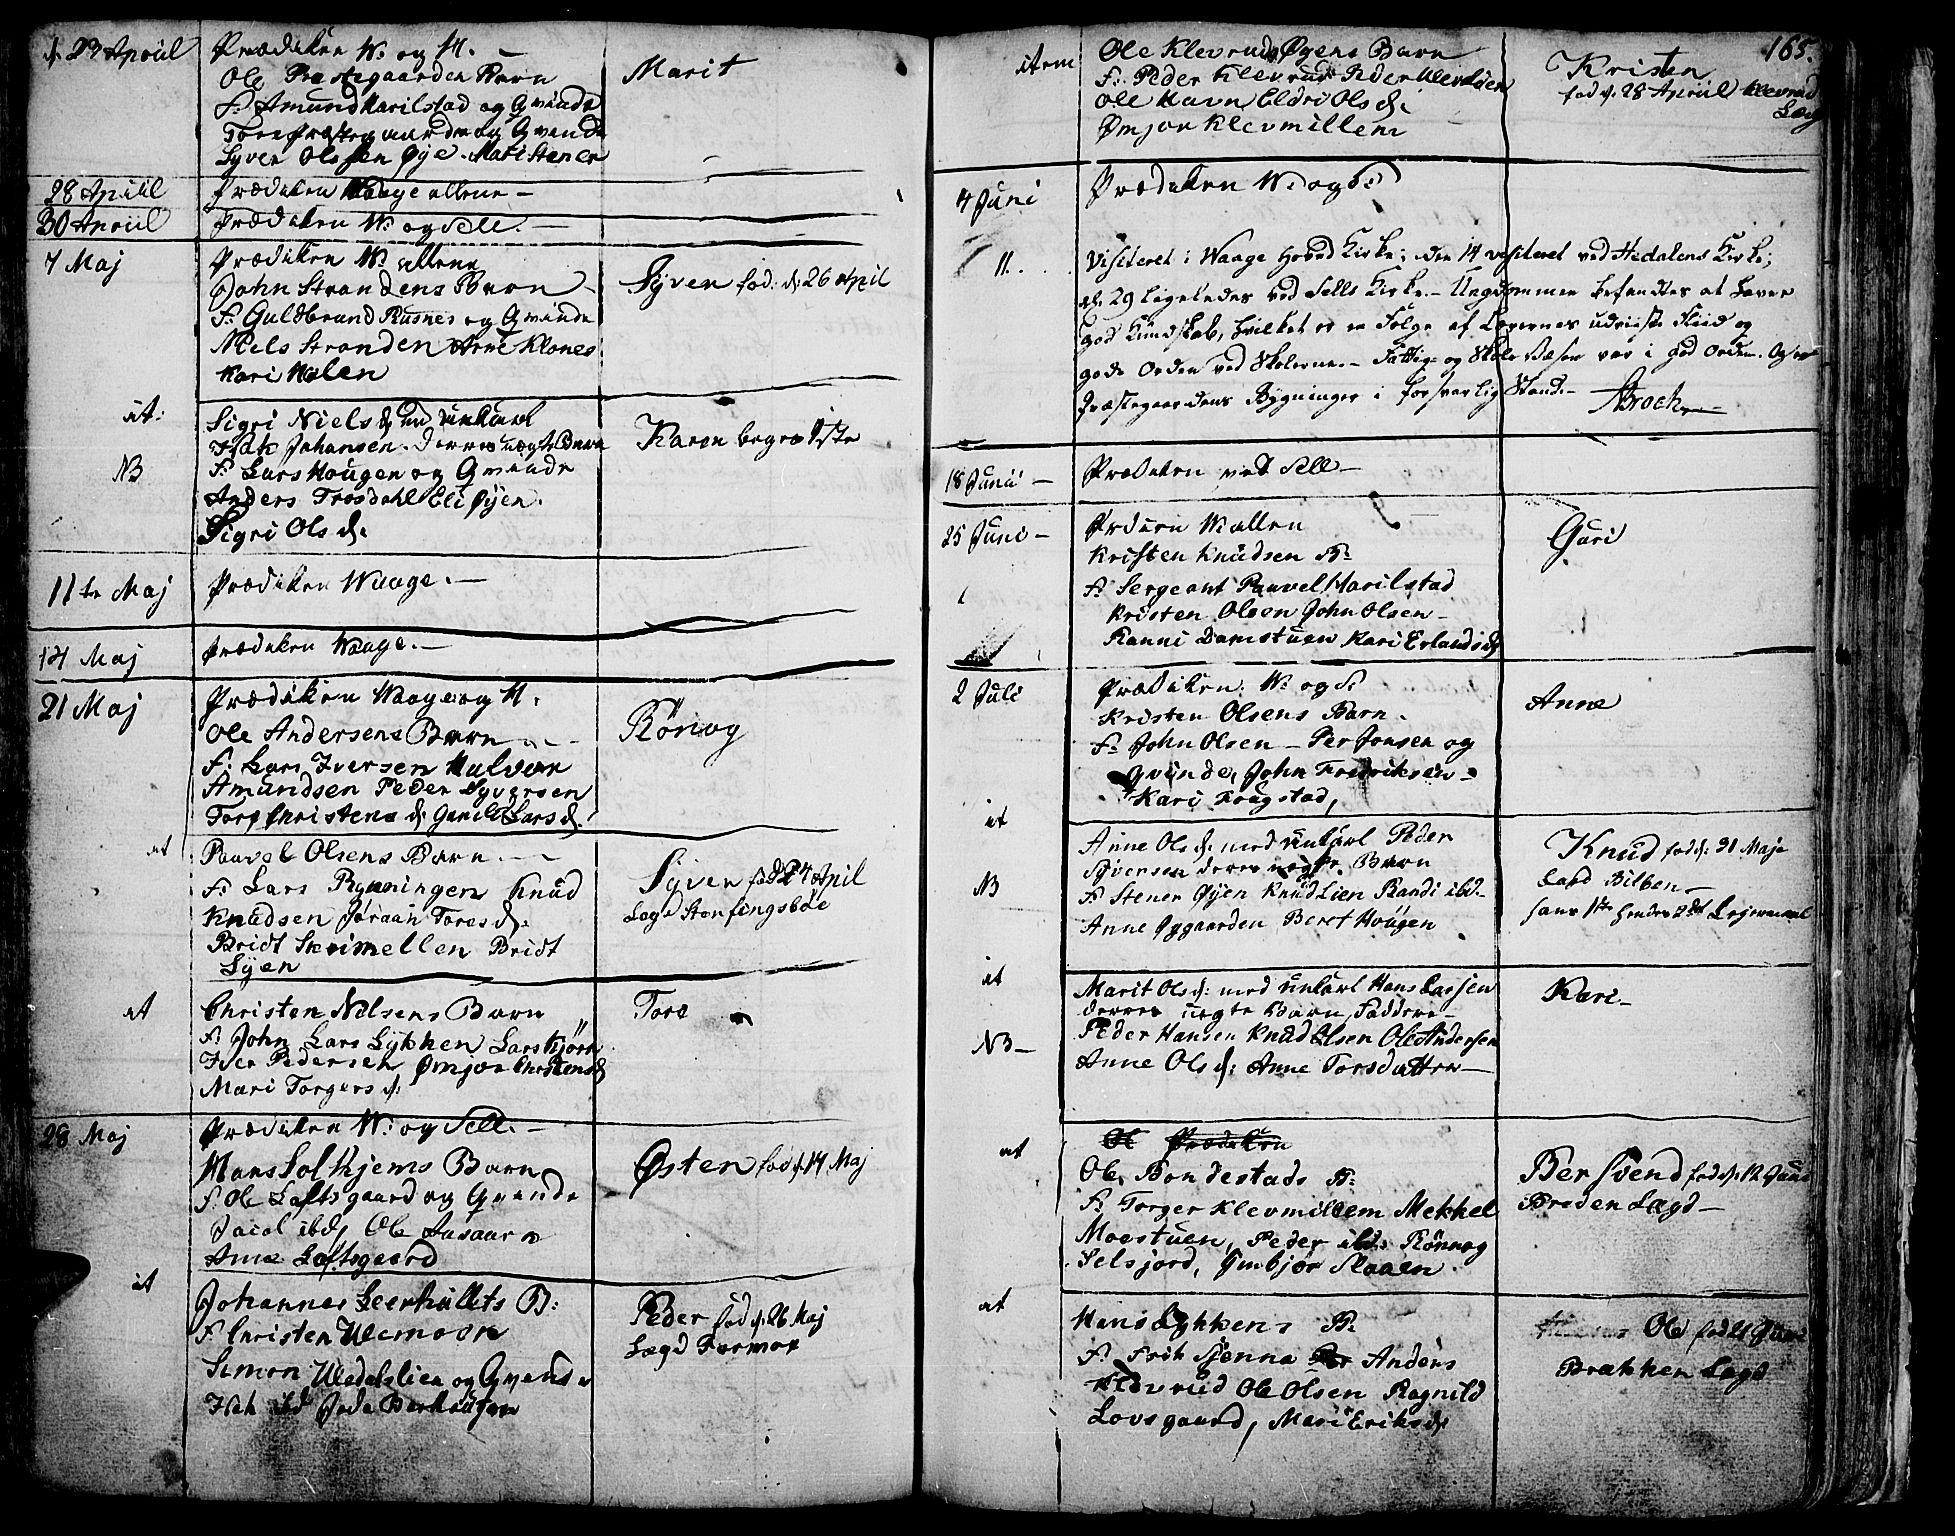 d. 23 Apriil
Prædiken W. og H. —
Ole Præstegaarden Barn
F. Amund Harilstad og Qvinde
Tore Præstegaarden og Qvinde
Syver Olssen Øye. Mari Stener
Marit
28 Apriil
Prædiken Waage allene —
30 Apriil
Prædiken W. og Sell. —
7 Maj
Prædiken W. allene
John Strandens Barn —
F. Guldbrand Rusnes og Qvinde
Niels Stranden Arne Klones
Kari Holen
Syver fød: d: 26 April
it:
NB
Sigri Niels d. med unkarl
Isak Johansen. Derres uægte Barn
F. Lars Hougen og Qvinde
Anders Frosdahl Eli Øyen.
Sigri Ols d.
Karen begravste
11te Maj
Prædiken Waage. —
14 Maj
Prædiken Waage. —
21 Maj
Prædiken Waage og H.
Ole Andersens Barn —
F. Lars Iversen Halvor
Amundsen Peder Syversen
Torø Christens d. Gunild Lars d.
Rønnog
it
Pauvel Olsens Barn —
F. Lars Rynningen Knud
Knudsen Jøraan Tores d:
Bridt Skrimellen Bridt
Lyen
Syver fød d. 27 April
Lagd Storfingsbøe
it
Christen Nilsens Barn
F. John Lars Lykken Lars Kjørn
Iver Pedersen Ømjor Christensd
Mari Torgers d:
Tore
28 Maj
Prædiken W. og Sell. —
Hans Solhjems Barn
F. Ole Loftsgaard og Qvinde
Jacol ibd, Ole Aasaarn
Anne Loftsgaard
Østen fød d. 14 Maj
it
Johannes Leerhullets B:
F. Christen Uemoen
Simon Uledalslien og Qvinde
Isak ibd
Peder fød d. 26 Maj
Lægd Formor
165.
item
Ole Klevruds Øyens Barn
F. Peder Klevrud Peder Klevmillen
Ole Havn Eldri Ols d.
Ømjor Klevmillem
Kristen
fød d. 28 Apriil Klevrud
Læg
4 Juni
Prædiken W. og S.
11.
Visiteret i Waage Hoved Kirke; den 14 visiteret ved Hedalens Kirke;
d. 29 ligeledes ved Sells Kirke. — Ungdommen befandtes at haver
god Kundskab, hvilket er en Følge af Lærernes udviiste Fliid og
gode Orden ved Skolerne. — Fattig- og Skole Væsen var i god Orden. Og
Præstegaardens Bygninger i forsvarlig Stand. —
18 Junii —
Prædiken ved Sell —
25 Juni —
Prdicn W. allen
Kristen Knudsen B.
F. Sergeant Pauvel Harilstad
Kristen Olson John Olsen —
Ranni Damstuen Kari Erlands d
Guri
2 Juli
Prædiken. W. og S.
Kristen Olsens Barn.
F. John Olsen — Per Jonsen og
Qvinde, John Fredriksen —
Kari Fougstad,
Anne
it
NB
Anne Ols d. med unkarl Peder
Syversen deres uægte Barn
F. Stener Øyen Knud Lien Randi ibd. —
Anne Øygaarden Beret Hougen
Knud fød d: 31 Maje
Lagd Bilben —
hans 1te hendes 2det Lejermaal
it
NB —
Marit Ols d: med unkarl Hans Larssen
derres uegte Barn, Faddere —
Peder Hansen Knud Olsen Ole Andersen
Anne Ols d: Anne Torsdatter —
Kari —
it
Prædiken
Ole Bondestads B:
F. Torger Klevmillem Mekkel
Moestuen, Peder ibd: Rønnog
Selsjord, Gunbjør Slaaen
Ber Svend fød d. 12 Juni
Breden Lagd —
it
Hans Lykkens B:
F. Erik Stenna Anders
Klevrud Ole Olsen Ragnild
Lovsgaard, Mari Eriks d
Ole fød 21 Juni
Brækken Lagd